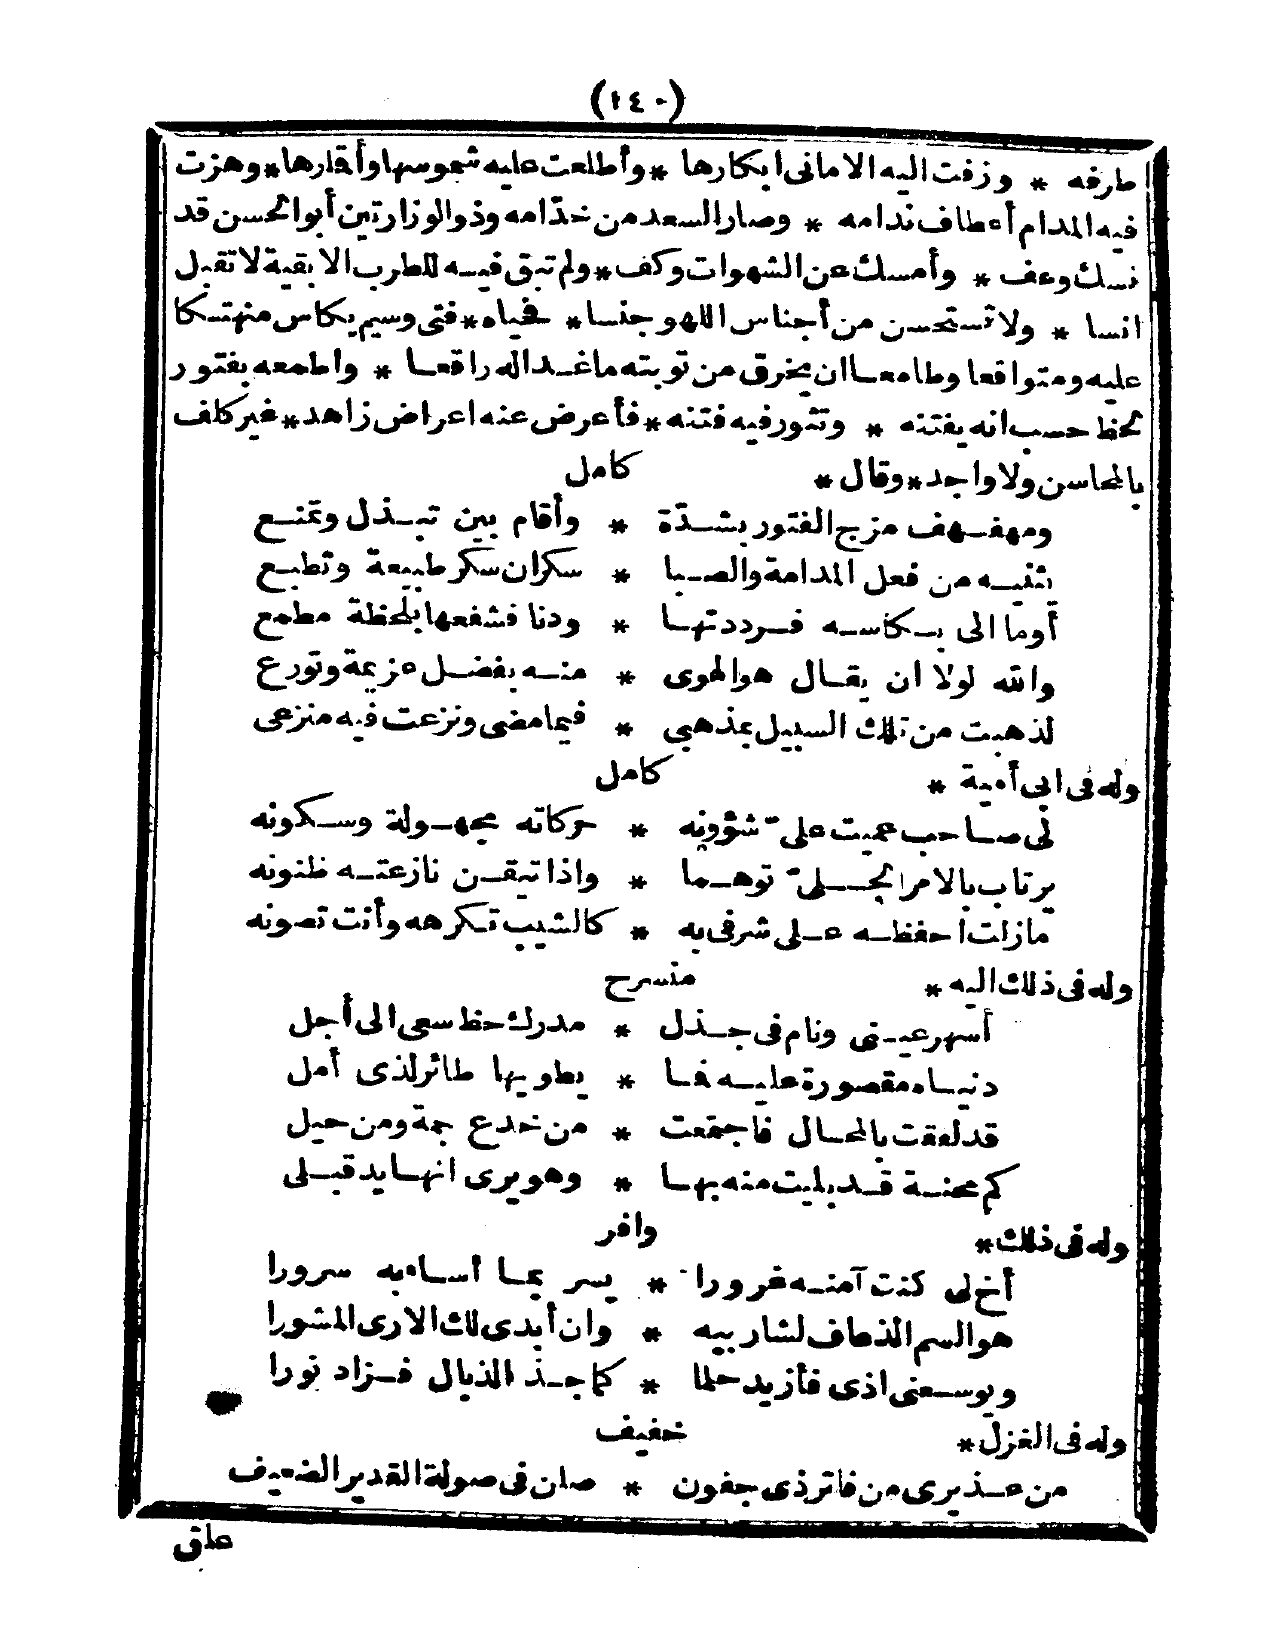 (١٤٠)
طرفه * وزفت اليه الامانى ابكارها * وأطلعت عليه شموسها وأقمارها * وهزت
فيه المدام أعطاف ندامه * وصار السعد من خدّامه وذو الوزارتين أبو الحسن قد
نسك وعف * وأمسك عن الشهوات وكف * ولم تبق فيه للطرب الا بقية لا تقبل
انسا * ولا تستحسن من أجناس اللهو جنسا * فحياه * فتى وسيم بكاس منهتكا
عليه ومتواقعا وطامعا ان يخرق من توبته ما غدا له راقعا * واطمعه بفتور
لحظ حسب انه يفتنه * وتثور فيه فتنه * فأعرض عنه اعراض زاهد * غير كلف
بالمحاسن ولا واجد * وقال * كامل
ومهفهف مزج الفتور بشدّة * وأقام بين تبذل وتمنع
يثنيه من فعل المدامة والصبا * سكران سكر طبيعة وتطبع
أوما الى بكاسه فرددتها * ودنا فشفعها بلحظة مطمع
والله لولا ان يقال هوالهوى * منه بفضل عزيمة وتورع
لذهبت من تلك السبيل بمذهبى * فيما مضى ونزعت فيه منزعى
وله فى ابى أمية * كامل
لى صاحب عميت علىّ شؤونه * حركاته مجهولة وسكونه
يرتاب بالامر الجلىّ توهما * واذا تيقن نازعته ظنونه
مازلت احفظه على شرفى به * كالشيب تكرهه وأنت تصونه
وله فى ذلك اليه * منسرح
أسهر عينى ونام فى جذل * مدرك حظ سعى الى أجل
دنياه مقصورة عليه فما * يطوى بها طائر لذى أمل
قد لعقت بالمحال فاجتمعت * من خدع جمة ومن حيل
كم محنة قد بليت منه بها * وهو يرى انها يد قبلى
وله فى ذلك * وافر
أخ لى كنت آمنه غرورا * يسر بما أساء به سرورا
هو السم الذعاف لشاربيه * وان أبدى لك الارى المشورا
ويوسعنى اذى فأزيد حلما * كما جذ الذبال فزاد نورا
وله فى الغزل * خفيف
من عذيرى من فاتر ذى جفون * صلن فى صولة القدير الضعيف
علق